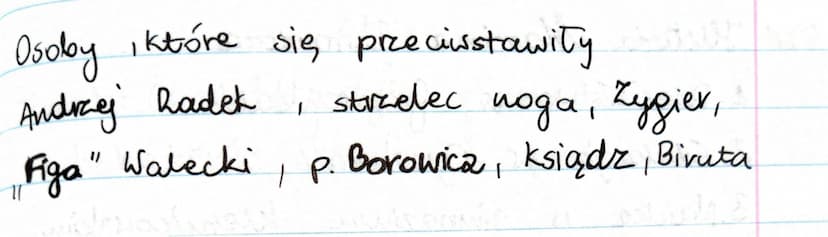 Osoby, które się przeciwstawiły
Andrzej Radek, strzelec noga, Zygier,
„Figa" Walecki, p. Borowicz, Ksiądz, Biruta